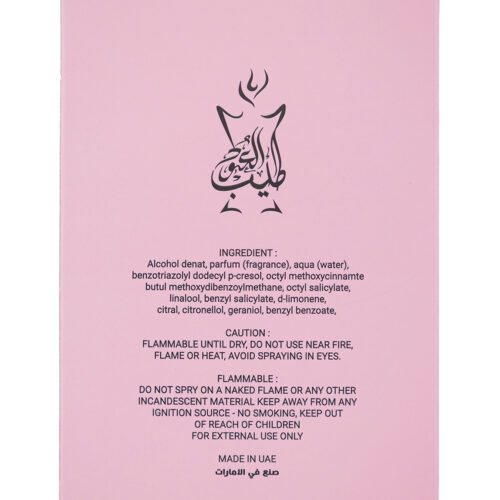 طيب العود
INGREDIENT :
Alcohol denat, parfum (fragrance), aqua (water),
benzotriazolyl dodecyl p-cresol, octyl methoxycinnamte
butul methoxydibenzoylmethane, octyl salicylate,
linalool, benzyl salicylate, d-limonene,
citral, citronellol, geraniol, benzyl benzoate,
CAUTION :
FLAMMABLE UNTIL DRY, DO NOT USE NEAR FIRE,
FLAME OR HEAT, AVOID SPRAYING IN EYES.
FLAMMABLE :
DO NOT SPRY ON A NAKED FLAME OR ANY OTHER
INCANDESCENT MATERIAL KEEP AWAY FROM ANY
IGNITION SOURCE - NO SMOKING, KEEP OUT
OF REACH OF CHILDREN
FOR EXTERNAL USE ONLY
MADE IN UAE
صنع في الامارات